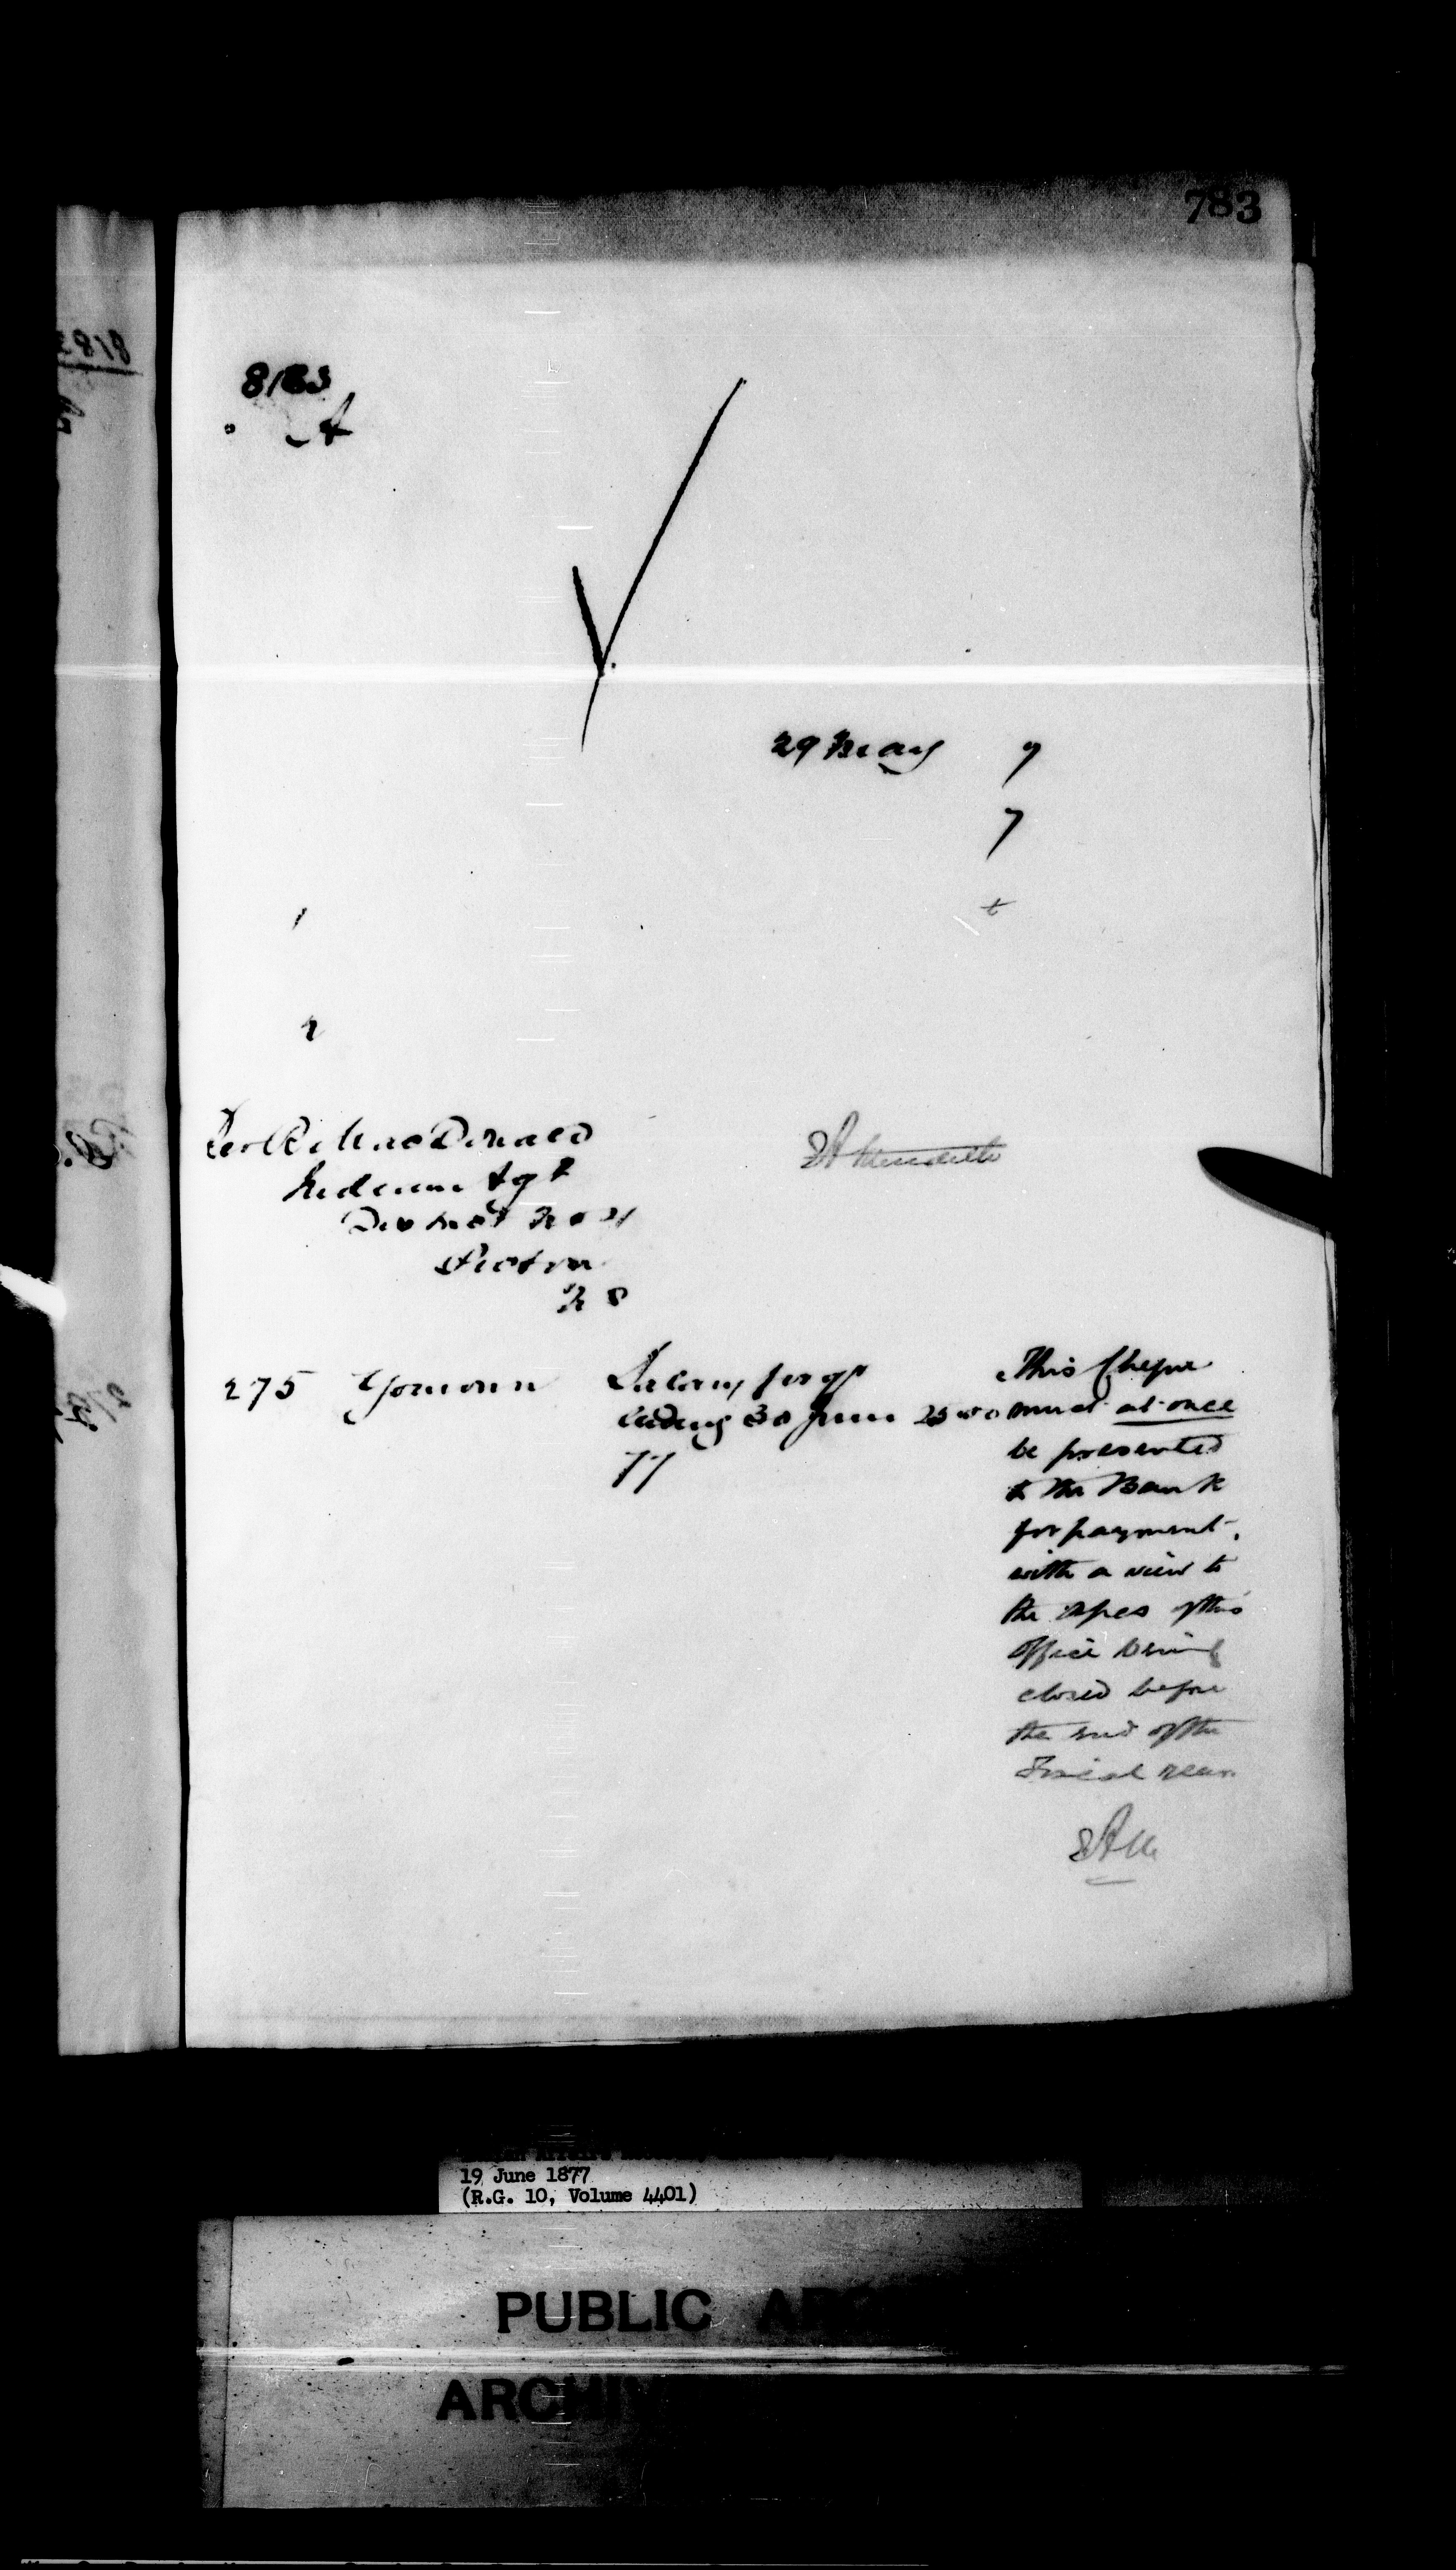 783
8183
A
29 May 7
7
1
2
Rev R MacDonald
Indian Agt
District No
Pictou
N S
275 Yourown Salary for qr
ending 30 June 25 00
77
This Cheque
must at once
be presented
to the Bank
for payment,
with a view to
the of this
Office being
closed before
the end of the
Fiscal year
EAM
EA Meredith
19 June 1877
(R.G. 10, Volume 4401)
PUBLIC
ARCHIV